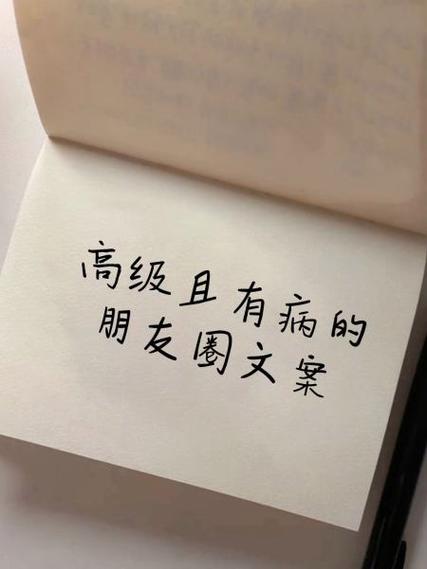 高级且有病的
朋友圈文案